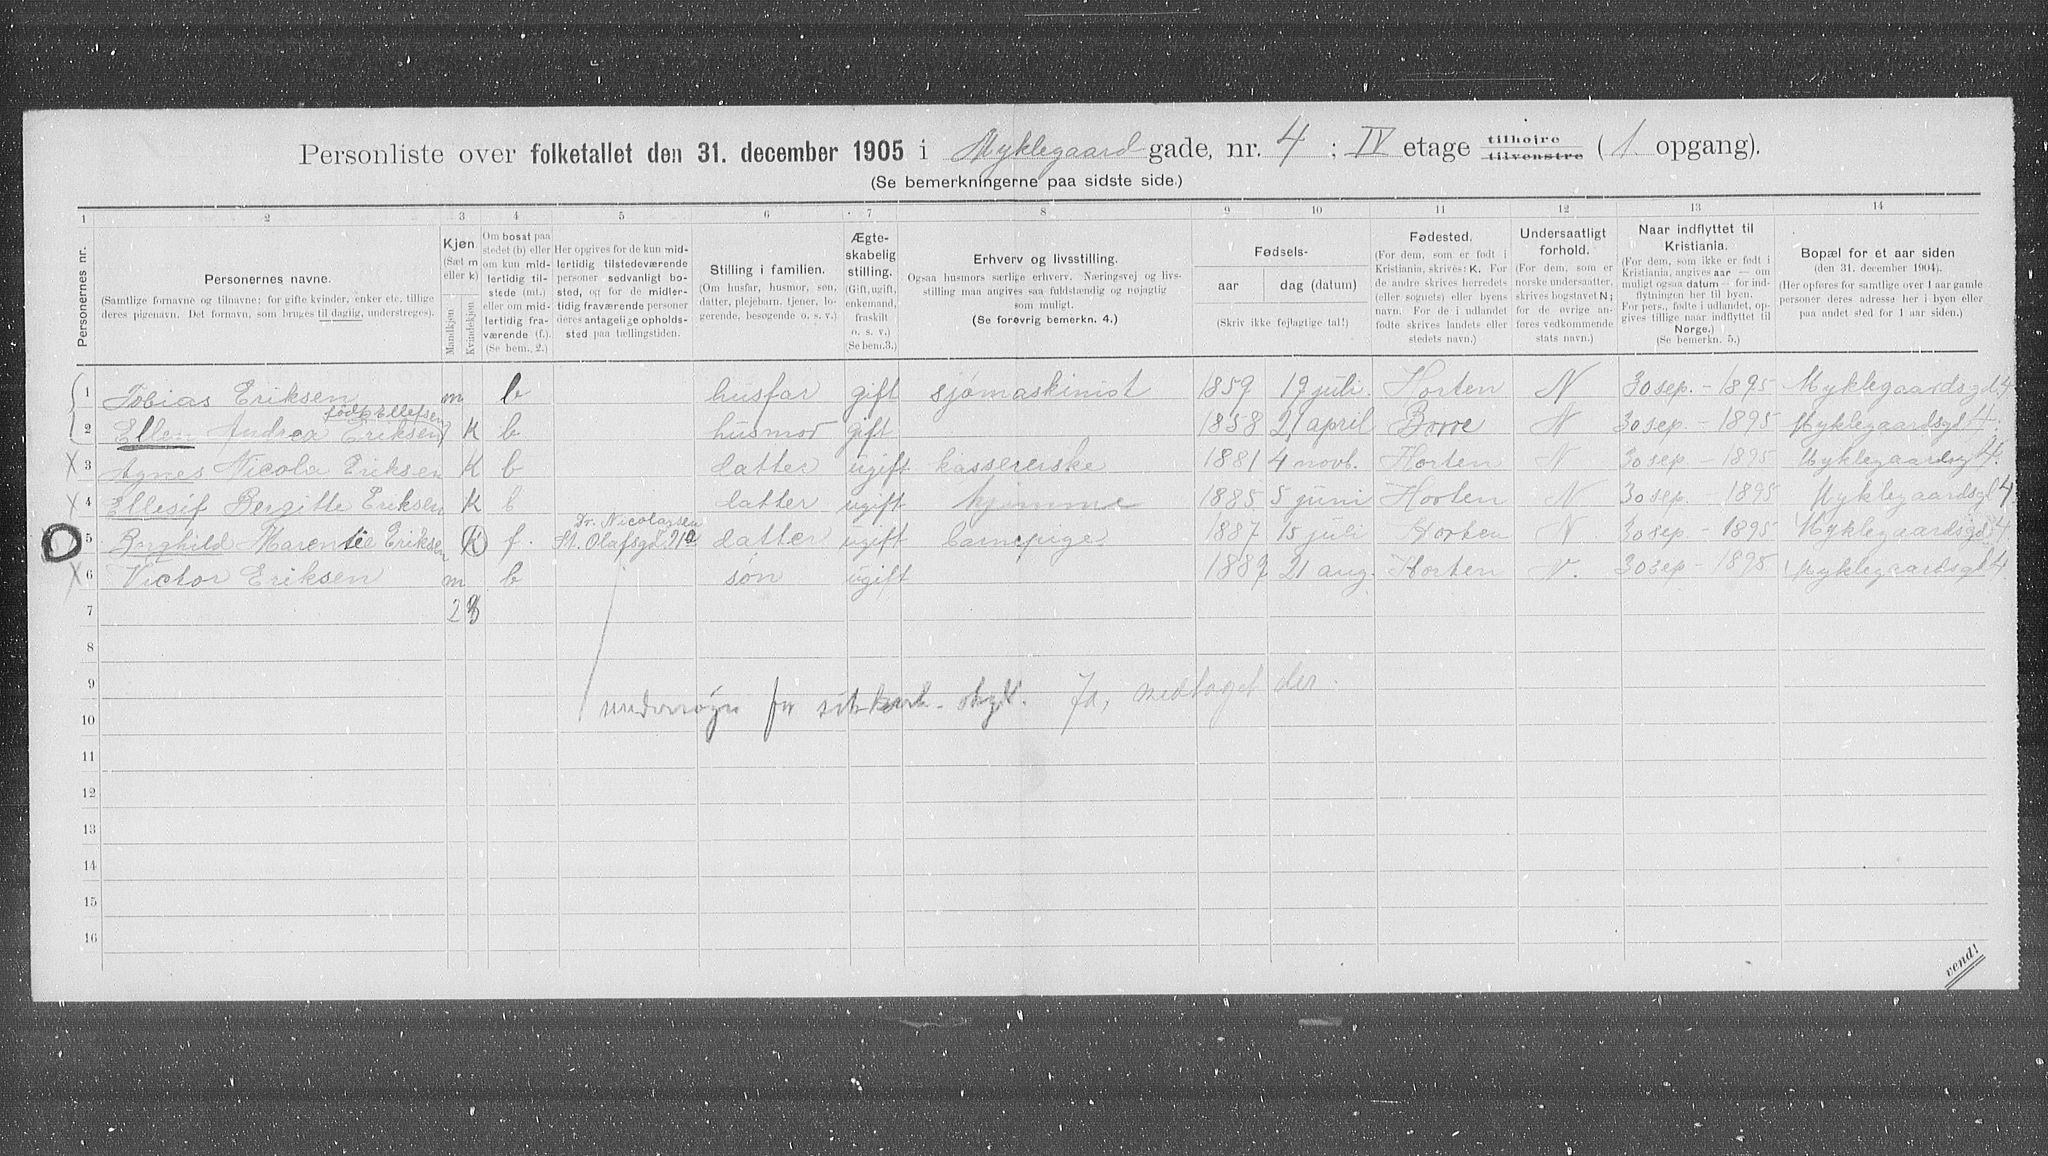 Personliste over folketallet den 31. december 1905 i Myklegaard gade, nr. 4 ; IV etage tilhøire tilvenstre ( 1. opgang).
(Se bemerkningerne paa sidste side.)
1 2 3 4 5 6 7 8 9 10 11 12 13 14
Personernes nr.
Personernes navne.
(Samtlige fornavne og tilnavne; for gifte kvinder, enker etc. tillige deres pigenavn. Det fornavn, som bruges til daglig, understreges).
Kjøn
(Sæt m eller k)
Mandkjøn
Kvindekjøn
Om bosat paa stedet (b) eller om kun midlertidig tilstede (mt.) eller om midlertidig fraværende (f.). (Se bem., 2.)
Her opgives for de kun midlertidig tilstedeværende personer sedvanligt bosted, og for de midlertidig fraværende personer deres antagelige opholdssted paa tællingstiden.
Stilling i familien.
(Om husfar, husmor, søn, datter, plejebarn, tjener, logerende, besøgende o. s. v.)
Ægteskabelig stilling.
(Gift, ugift, enkemand, fraskilt o. s. v.) (Se bem.3.)
Erhverv og livsstilling.
Ogsaa husmors særlige erhverv. Næringsvej og livsstilling maa angives saa fuldstændig og nøjagtig som muligt.
(Se forøvrig bemerkn. 4.)
Fødsels-
aar dag (datum)
(Skriv ikke fejlagtige tal!)
Fødested.
(For dem, som er født i Kristiania, skrives: K. For de andre skrives herredets (eller sognets) eller byens navn. For de i udlandet fødte skrives landets eller stedets navn.)
Undersaatligt forhold.
(For dem, som er norske undersaatter, skrives bogstavet N; for de øvrige anføres vedkommende stats navn.)
Naar indflyttet til Kristiania.
(For dem, som ikke er født i Kristiania, angives aar — om muligt ogsaa datum — for indflytningen her til byen. For pers., fødte i udlandet, opgives tillige naar indflyttet til Norge.)
(Se bemerkn. 5.)
Bopæl for et aar siden
(den 31. december 1904.)
(Her opføres for samtlige over 1 aar gamle personer deres adresse her i byen eller paa andet sted for 1 aar siden.)
1 Tobias Eriksen m b husfar gift sjømaskinist 1859 19 juli. Horten N 30 sep. - 1895 Myklegaardsgd. 4
født Ellefsen
2 Ellen Andrea Eriksen K b husmor gift 1858 21 april Borre N 30 sep. - 1895 Myklegaardsgd 4.
3 Agnes Nicola Eriksen K b datter ugift kassererske 1881 4 novb. Horten N 30 sep - 1895 Myklegaardsg 4.
4 Ellesif Bergitte Eriksen K b datter ugift hjemme 1885 5 juni Horten N 30 sep. - 1895 Myklegaardsgd 4.
Dr. Nicolaysen
5 Borghild Marentie Eriksen K f. St. Olafsgd 21a datter ugift barnepige. 1887 15 juli Horten N. 30 sep - 1895 Myklegaardsgd 4.
6 Victor Eriksen m b søn ugift 1889 21 aug. Horten N. 30 sep - 1895 Myklegaardsgd 4.
7 2 3
8
9
undersøgn for sikkerh. skyld. Ja, medtaget der.
10
11
12
13
14
15
16
vend!